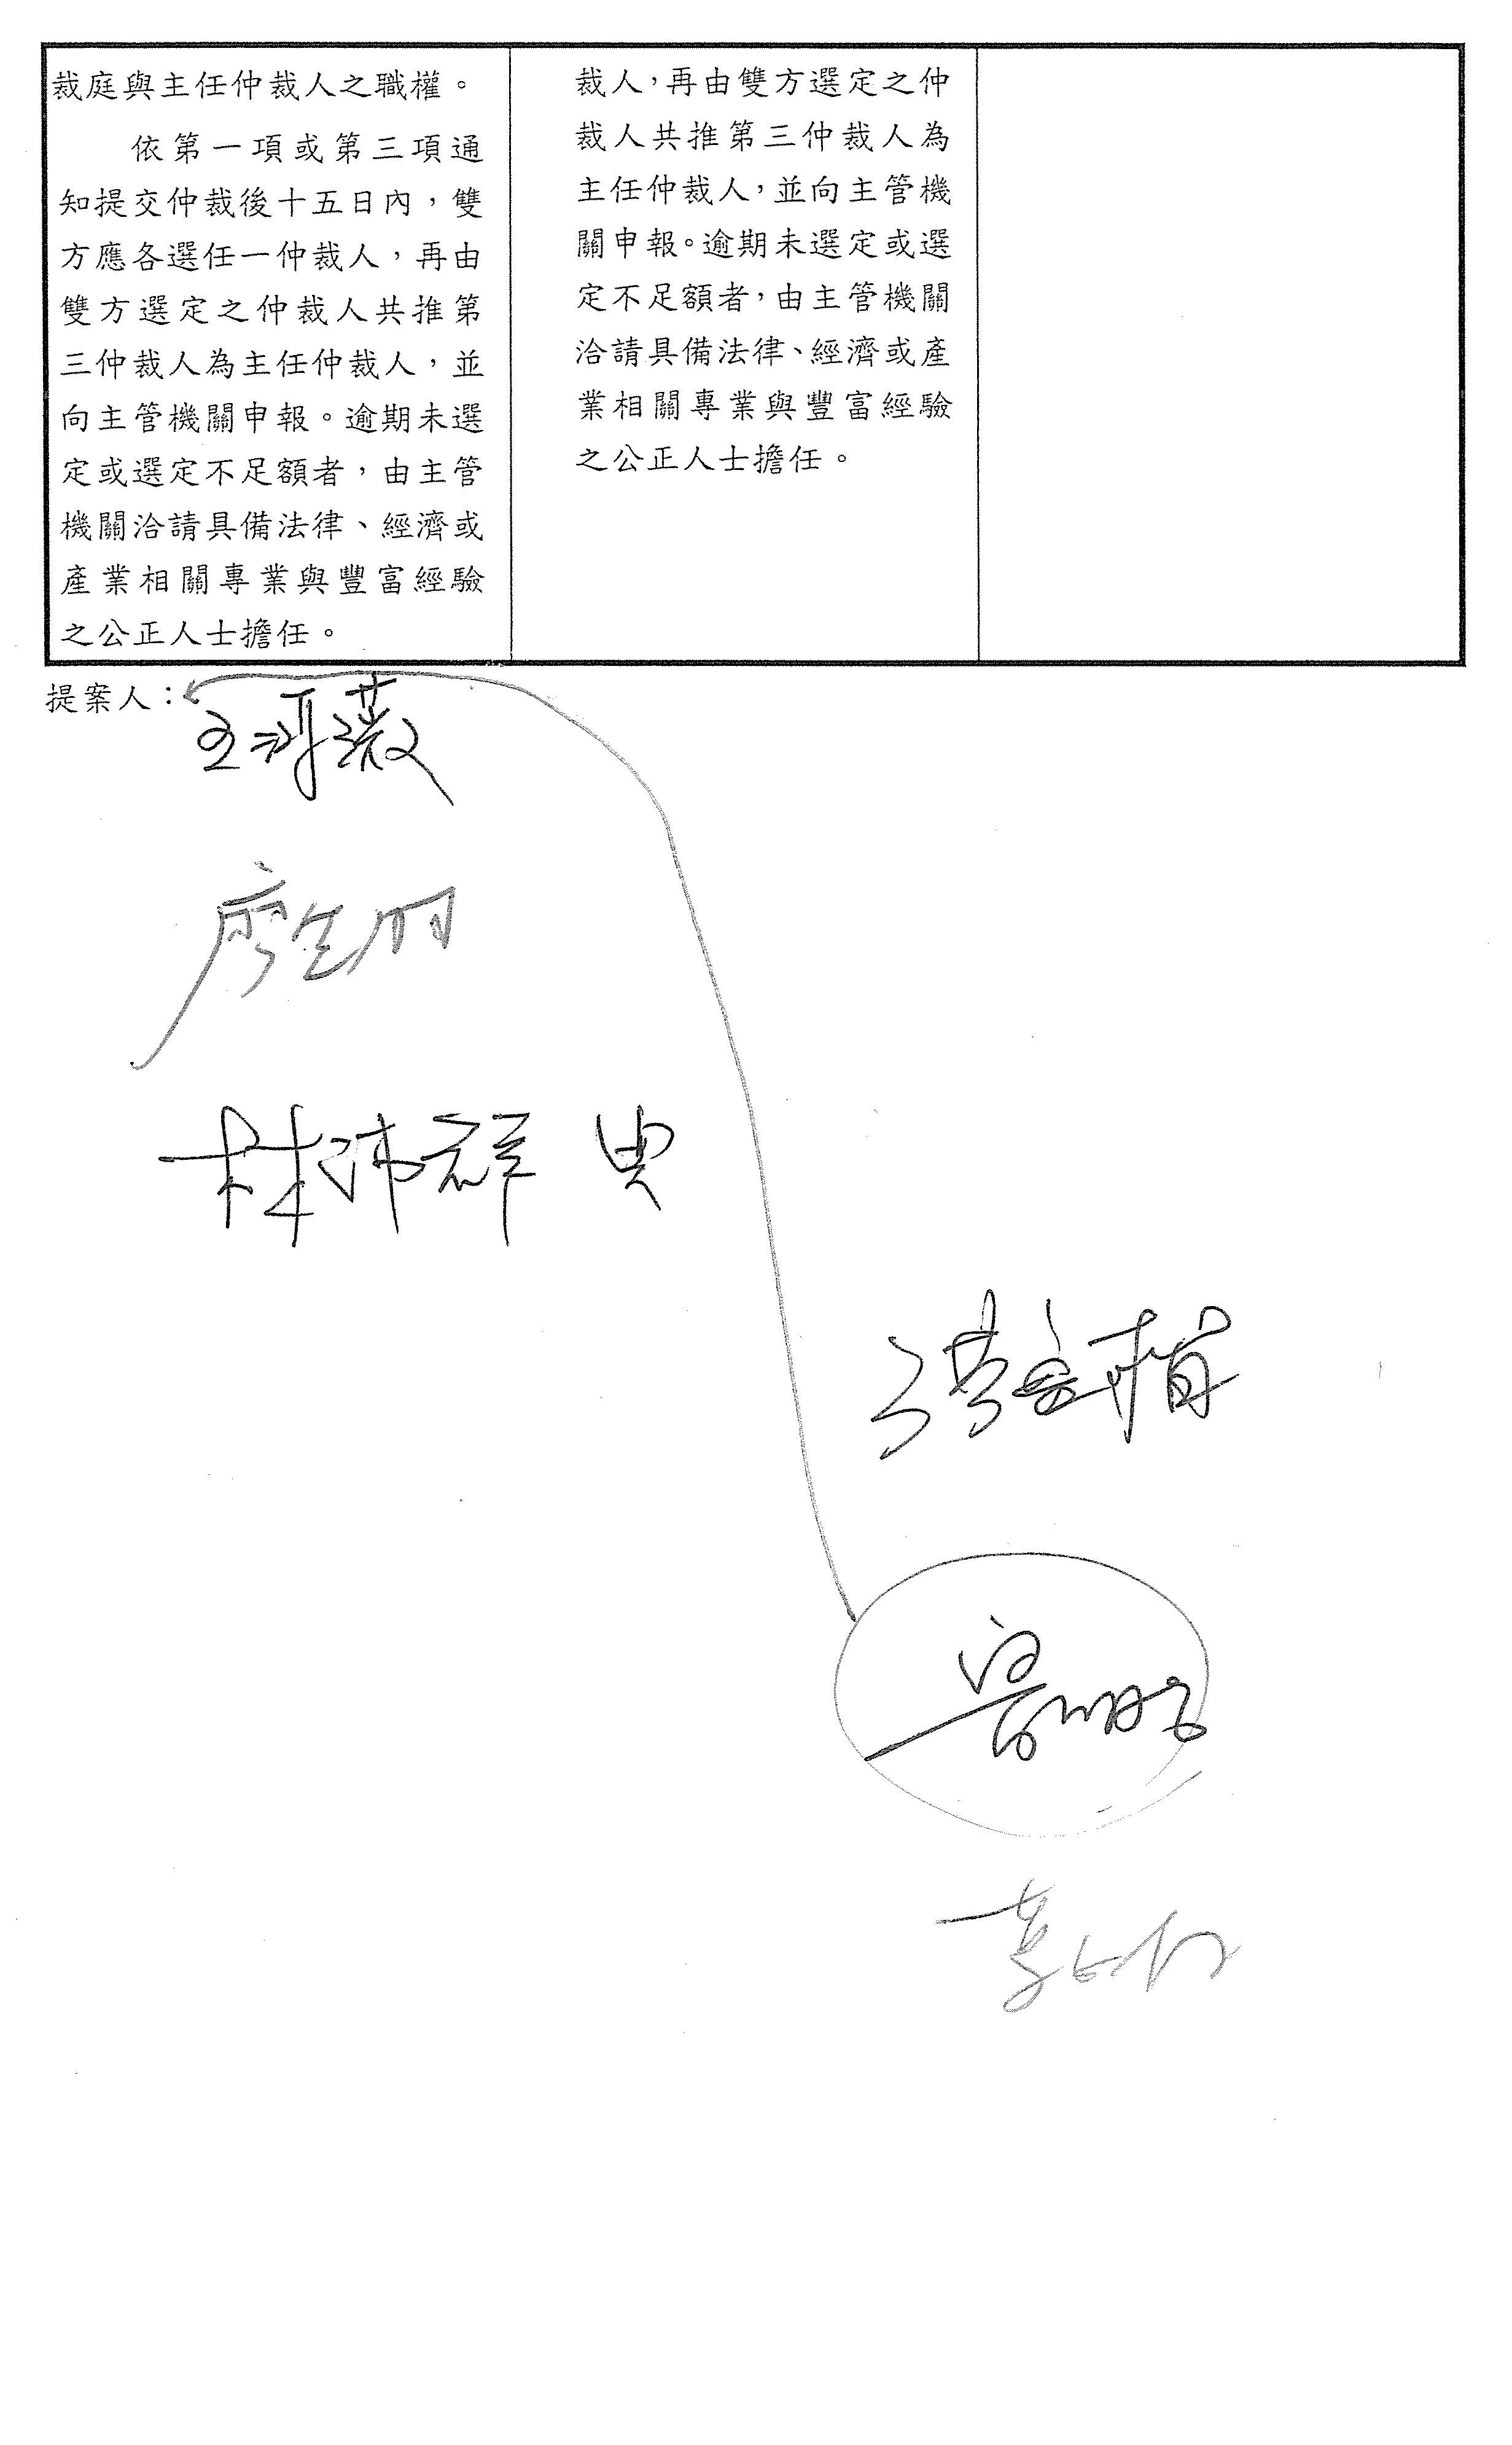 裁庭與主任仲裁人之職權。
依第一項或第三項通
知提交仲裁後十五日內，雙
方應各選任一仲裁人，再由
雙方選定之仲裁人共推第
三仲裁人為主任仲裁人，並
向主管機關申報。逾期未選
定或選定不足額者，由主管
機關洽請具備法律、經濟或
產業相關專業與豐富經驗
之公正人士擔任。
裁人，再由雙方選定之仲
裁人共推第三仲裁人為
主任仲裁人，並向主管機
關申報。逾期未選定或選
定不足額者，由主管機關
洽請具備法律、經濟或產
業相關專業與豐富經驗
之公正人士擔任。
提案人：
林沛祥